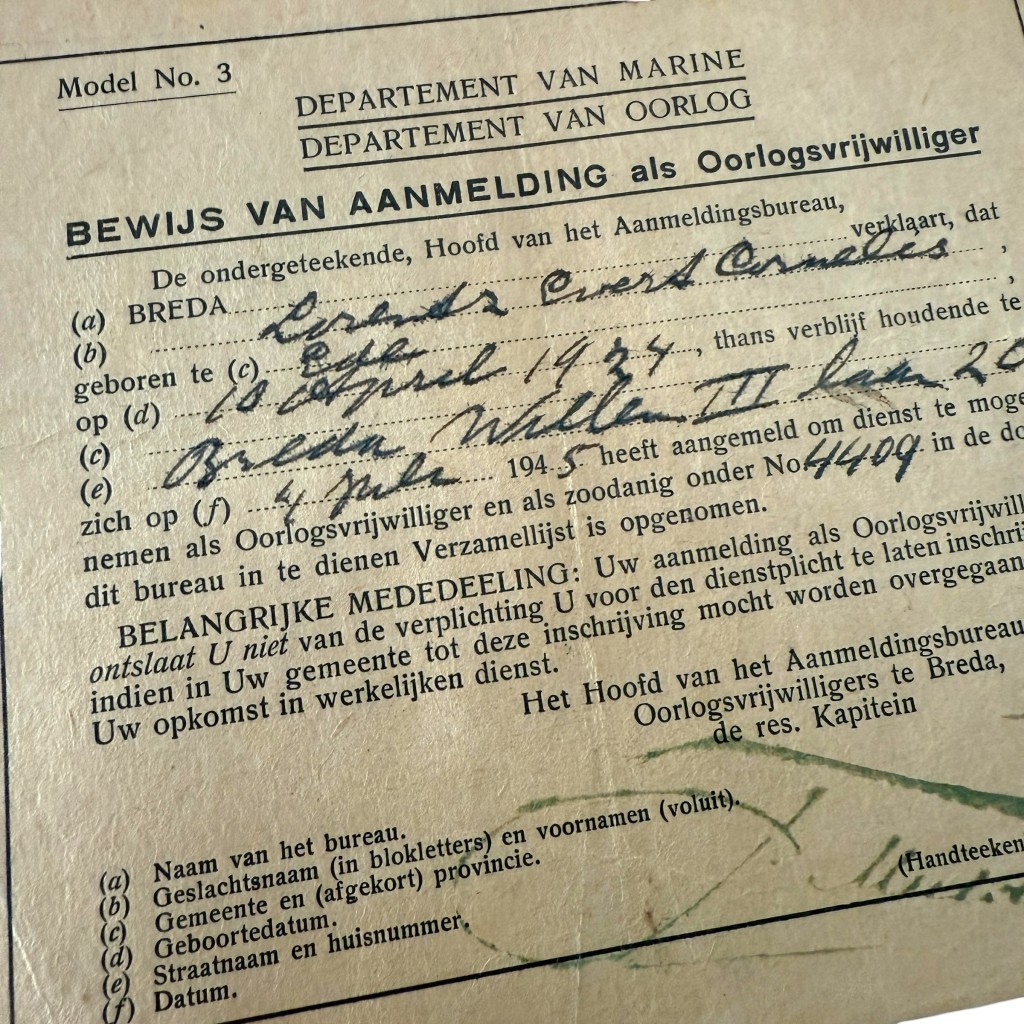 Model No. 3
DEPARTEMENT VAN MARINE
DEPARTEMENT VAN OORLOG
BEWIJS VAN AANMELDING als Oorlogsvrijwilliger
De ondergeteekende, Hoofd van het Aanmeldingsbureau,
(a) BREDA verklaart, dat
(b) Lorentz Evert Cornelis ,
geboren te (c) Ede ,
op (d) 10 April 1924, thans verblijf houdende te
(c) Breda Willem III laan 20
(e)
zich op (f) 4 Juli 1945 heeft aangemeld om dienst te moge
nemen als Oorlogsvrijwilliger en als zoodanig onder No 4409 in de do
dit bureau in te dienen Verzamellijst is opgenomen.
BELANGRIJKE MEDEDEELING: Uw aanmelding als Oorlogsvrijwill
ontslaat U niet van de verplichting U voor den dienstplicht te laten inschri
indien in Uw gemeente tot deze inschrijving mocht worden overgegaan
Uw opkomst in werkelijken dienst.
Het Hoofd van het Aanmeldingsbureau
Oorlogsvrijwilligers te Breda,
de res. Kapitein
(Handteeken
(a) Naam van het bureau.
(b) Geslachtsnaam (in blokletters) en voornamen (voluit).
(c) Gemeente en (afgekort) provincie.
(d) Geboortedatum.
(e) Straatnaam en huisnummer.
(f) Datum.